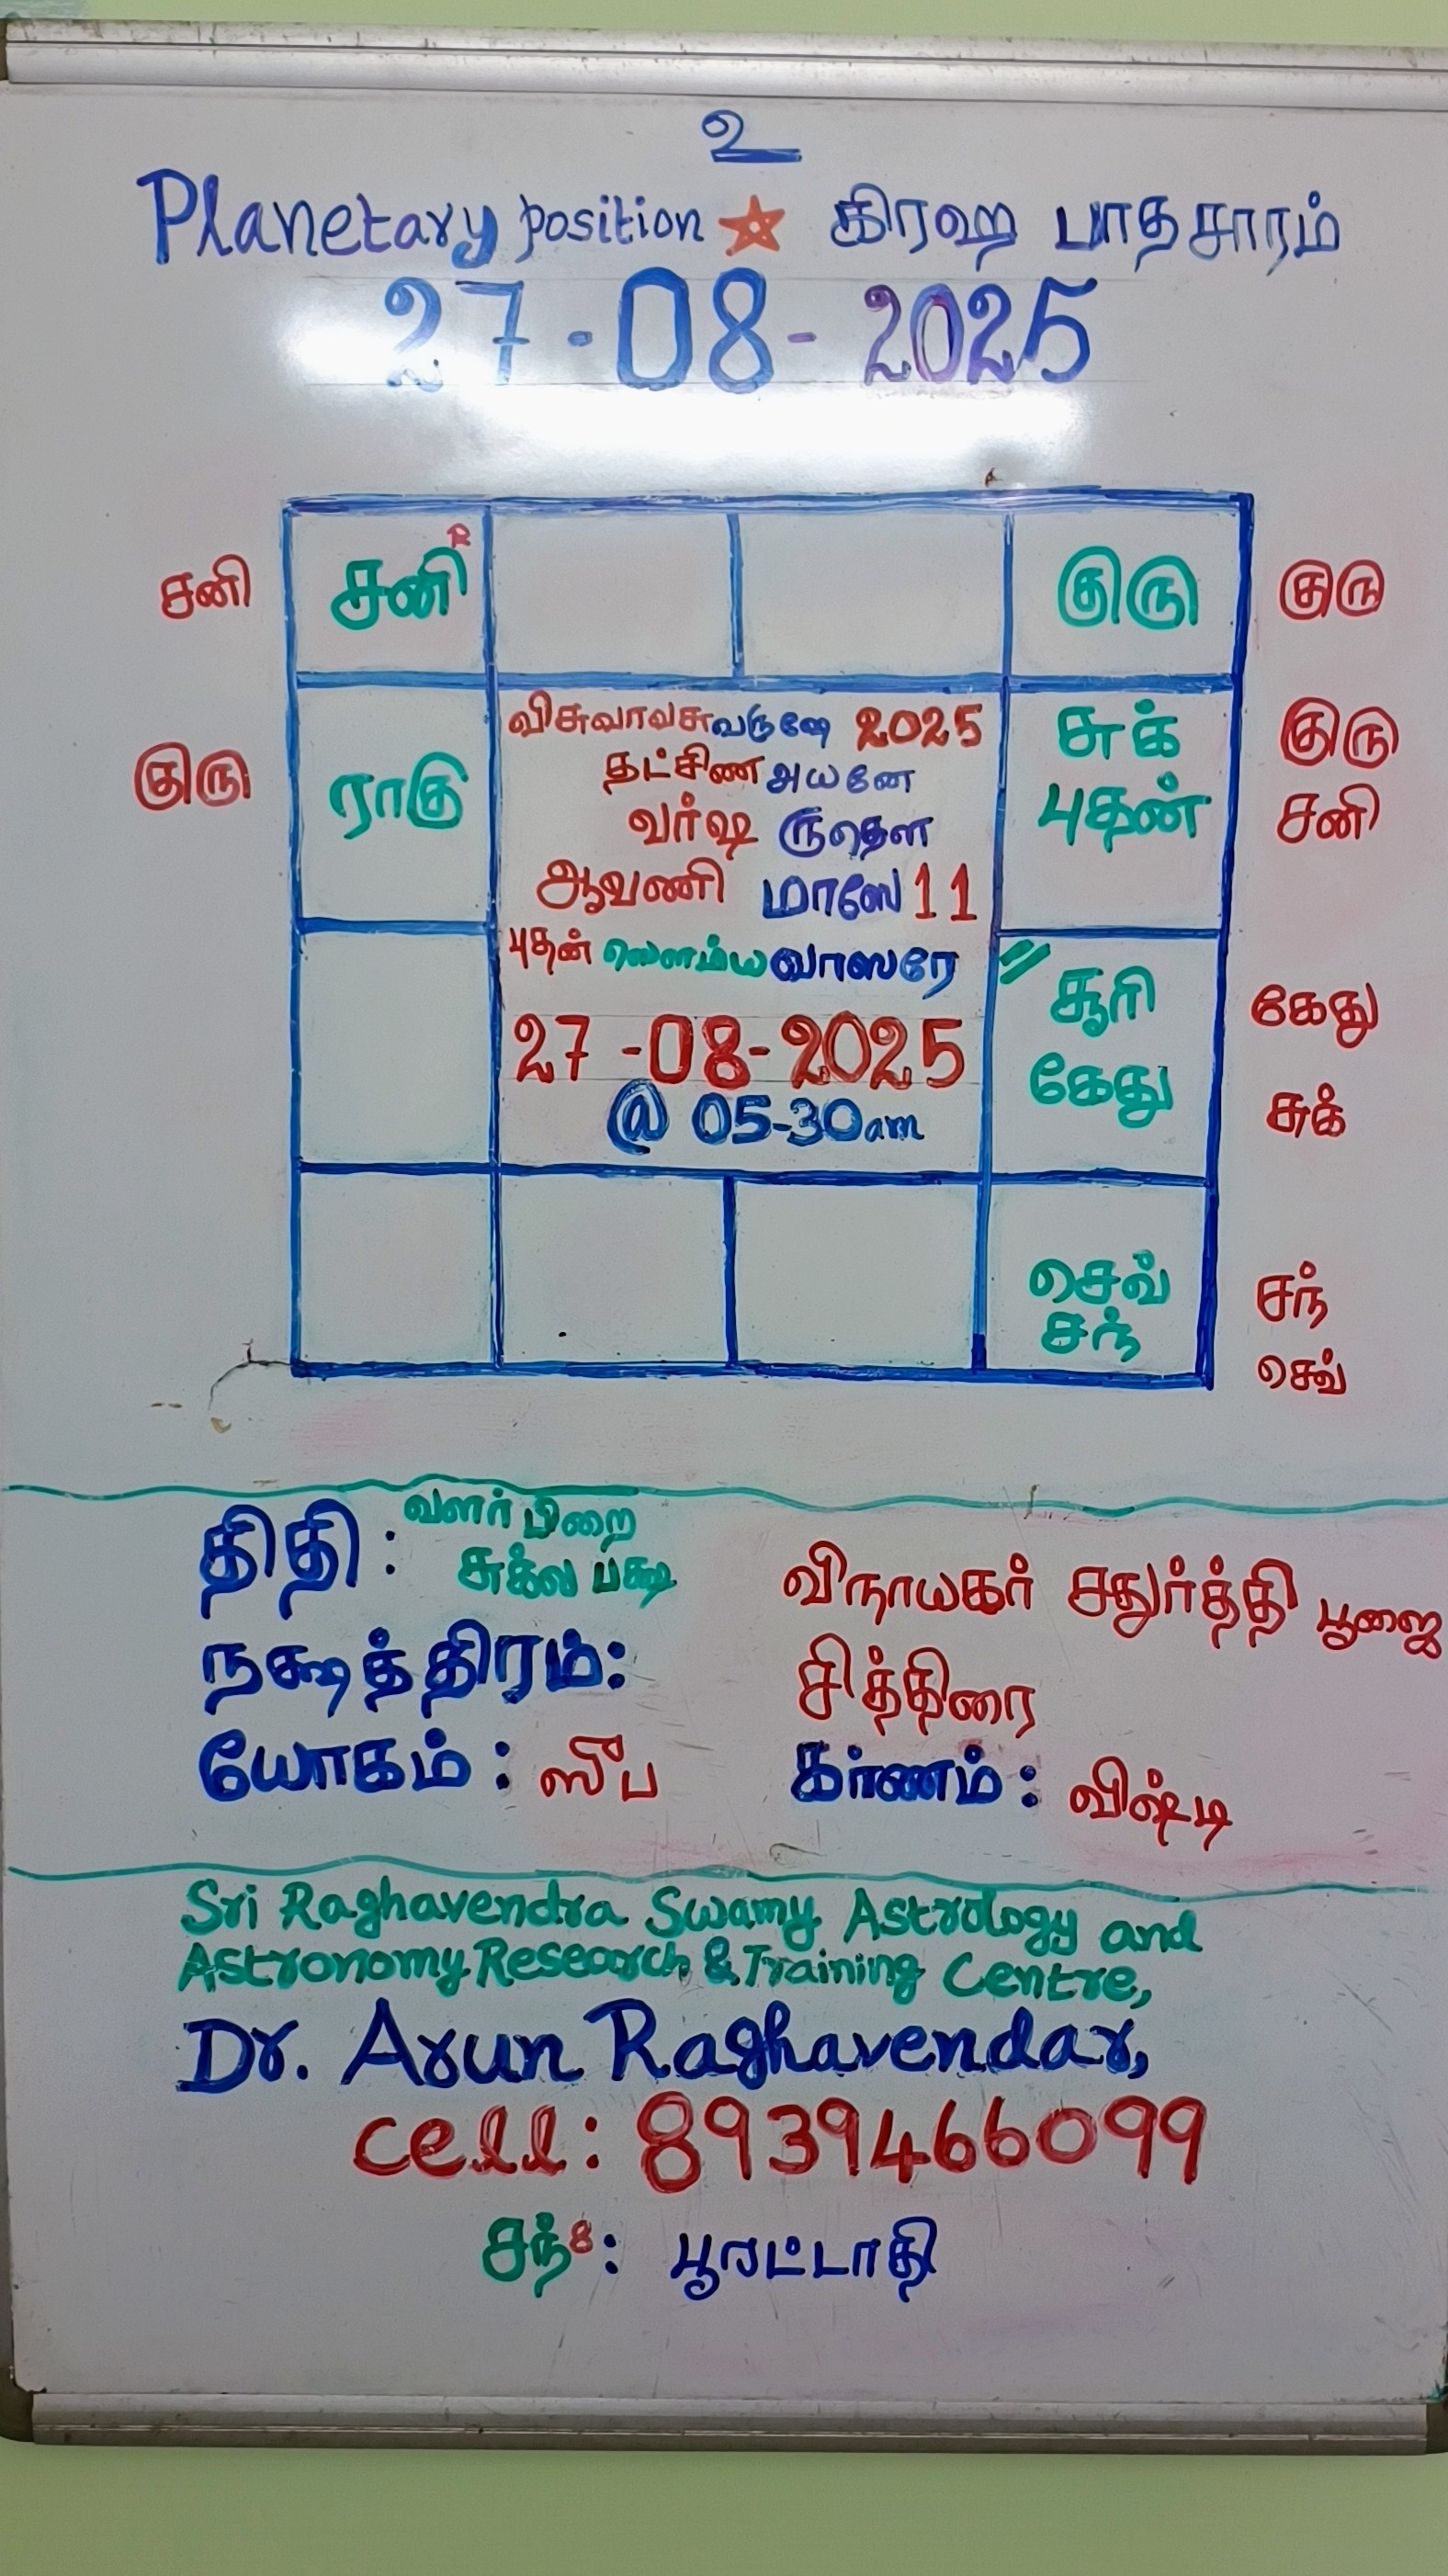 உ
Planetary position ★ கிரஹ பாதசாரம்
27-08-2025
சனி சனி R குரு குரு
விசுவாவசுவருஷே 2025
தட்சிண அயனே
வர்ஷ ருதௌ
ஆவணி மாஸே 11
புதன் ஸௌம்ய வாஸரே
27-08-2025
@ 05-30am
குரு ராகு
சுக் குரு
புதன் சனி
சூரி கேது
கேது சுக்
செவ் சந்
சந் செவ்
திதி: வளர்பிறை
சுக்ல பக்ஷ விநாயகர் சதுர்த்தி பூஜை
நக்ஷத்திரம்: சித்திரை
யோகம்: ஸுப கர்ணம்: விஷ்டி
Sri Raghavendra Swamy Astrology and
Astronomy Research & Training Centre,
Dr. Arun Raghavendar,
cell: 8939466099
சந்8: பூரட்டாதி